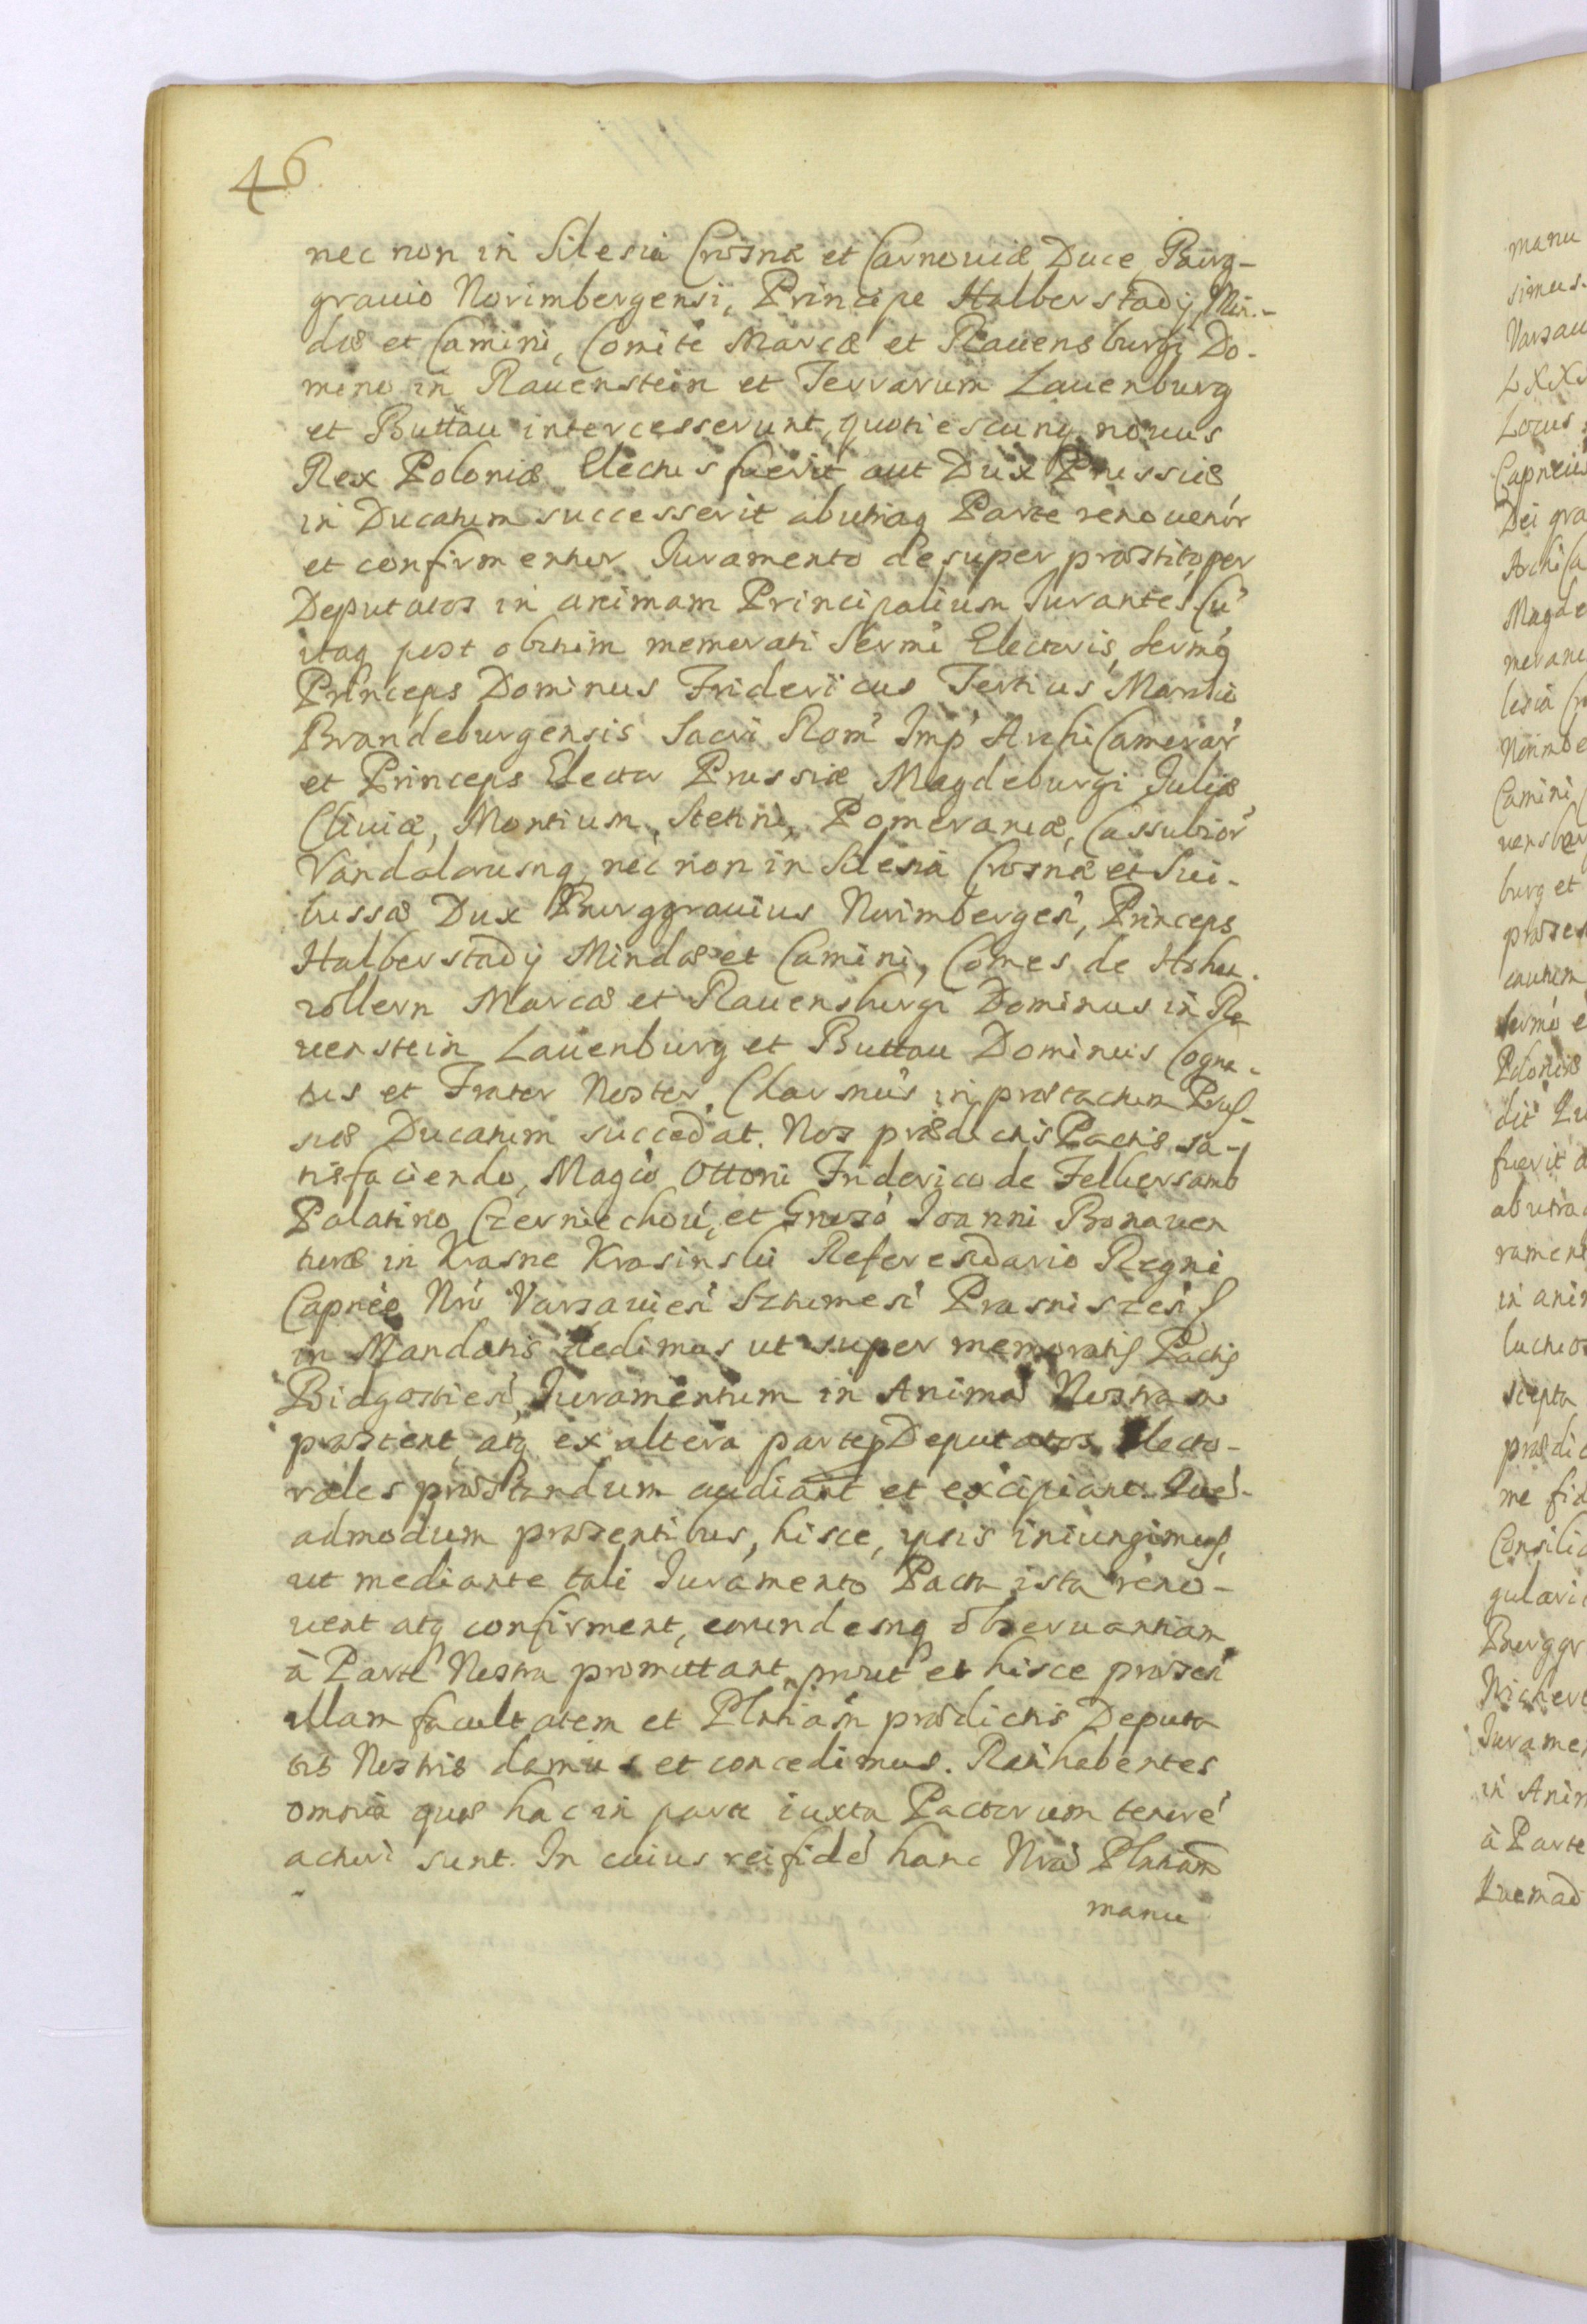 46
nec non in Silesia Crosnæ et Carnouiæ Duce, Burg-
grauio Norimbergensi, Principe Halberstadij, Min-
dæ et Camini, Comite Marcæ et Rauensburgi Do-
mino in Rauenstein et Terrarum Lauenburg
et Buttau intercesserunt, quotiescunq nouus
Rex Poloniæ Electus fuerit, aut Dux Prussiæ
in Ducatum successerit ab utraq Parte renouentr
et confirmentur Iuramento desuper præstito, per
Deputatos in animam Principalium Iurantes. Cu
itaq post obitum memorati Sermi Electoris, Sermq
Princeps Dominus Fridericus Tertius Marchio
Brandeburgensis Sacri Rom Imp ArchiCamerar
et Princeps Elector Prussiæ Magdeburgi Juliæ
Cliuiæ, Montium, Stetini, Pomeraniæ, Cassubior
Vandalorumq nec non in Silesia Crosnæ et Sui-
bussæ Dux Burggrauius Norimbergesi, Princeps
Halberstadij Mindæ et Camini, Comes de Hohen
zollern Marcæ et Rauensburgi Dominus in Ra
uenstein Lauenburg et Buttau Dominus Cogna-
tus et Frater Noster Charsmus in præfactum Prus-
siæ Ducatum succedat. Nos prædictis Pactis sa-
tisfaciendo, Magco Ottoni Friderico de Felkersamb
Palatino Czerniechou, et Gnroso Joanni Bonauen
turæ in Krasne Krasinski Referendario Regni
Capneo Nro Varsauiesi Sztumesi Prasniszesi
in Mandatis dedimus ut super memoratis Pactis
Bidgostiesi, Iuramentum in Anima Nostram
præstent, atq ex altera parte p Deputatos Electo-
rales præstandum audiant et excipiant. Que-
admodum præsentibus, hisce, ipsis iniungimus,
ut mediante tali Iuramento Pacta ista reno-
uent atq confirment, eorundemq obseruantiam
à Parte Nostra promittant, prout et hisce præsen
illam facultatem et Plntiam prædictis Deputa
tis Nostris damus et concedimus. Ratihabentes
omnia quæ hac in parte iuxta Pactorum tenore
acturi sunt. In cuius rei fide hanc Nra Plntiam
manu
manu
simus.
Varsau
Locus
Dei gra
Magde
Camini
burg et
Poloniæ
fuerit a
in anim
prædic
me fid
Consilia
gulari
Burggr
Iuramen
in Anim
à Parte
Quemad